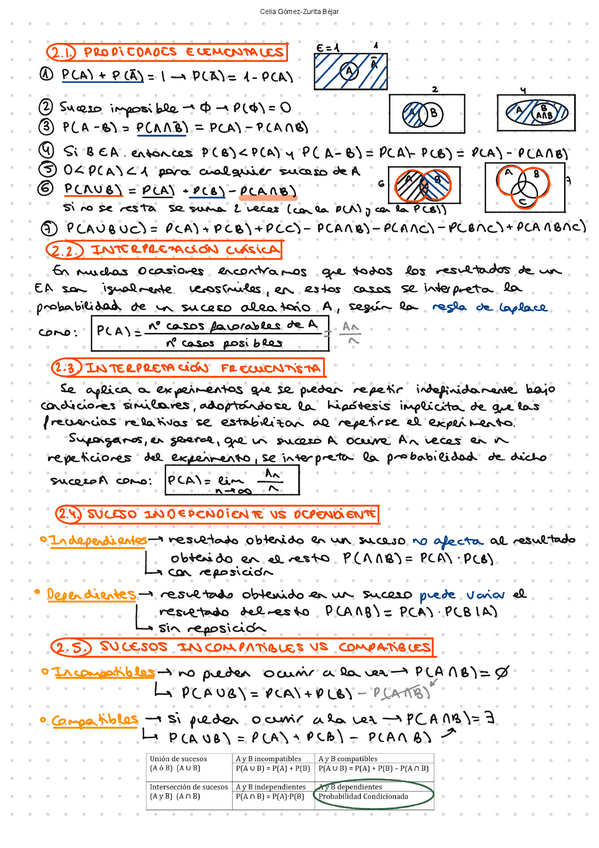 Celia Gómez-Zurita Béjar
2.1. PROPIEDADES ELEMENTALES
E=1 1
A Ā
① P(A) + P(Ā) = 1 → P(Ā) = 1 - P(A)
2 4
② Suceso imposible → ∅ → P(∅) = 0
A B
A B A∩B
③ P(A - B) = P(A∩B̄) = P(A) - P(A∩B)
④ Si B∈A entonces P(B) < P(A) y P(A - B) = P(A) - P(B) = P(A) - P(A∩B)
⑤ 0 < P(A) < 1 para cualquier suceso de A
6 A B
A B C 7
⑥ P(A∪B) = P(A) + P(B) - P(A∩B)
si no se resta se suma 2 veces (con la P(A) y con la P(B))
⑦ P(A∪B∪C) = P(A) + P(B) + P(C) - P(A∩B) - P(A∩C) - P(B∩C) + P(A∩B∩C)
2.2. INTERPRETACIÓN CLÁSICA
En muchas ocasiones encontramos que todos los resultados de un
EA son igualmente verosímiles, en estos casos se interpreta la
probabilidad de un suceso aleatorio A, según la regla de Laplace
como: P(A) = nº casos favorables de A / nº casos posibles = An / n
2.3 INTERPRETACIÓN FRECUENTISTA
Se aplica a experimentos que se pueden repetir indefinidamente bajo
condiciones similares, adoptándose la hipótesis implícita de que las
frecuencias relativas se estabilizan al repetirse el experimento.
Supongamos, en general, que un suceso A ocurre An veces en n
repeticiones del experimento, se interpreta la probabilidad de dicho
suceso A como: P(A) = lim n→∞ An / n
2.4. SUCESO INDEPENDIENTE VS DEPENDIENTE
Independientes → resultado obtenido en un suceso no afecta al resultado
obtenido en el resto P(A∩B) = P(A) · P(B)
↳ con reposición
Dependientes → resultado obtenido en un suceso puede variar el
resultado del resto P(A∩B) = P(A) · P(B|A)
↳ sin reposición
2.5. SUCESOS INCOMPATIBLES VS COMPATIBLES
Incompatibles → no pueden ocurrir a la vez → P(A∩B) = ∅
↳ P(A∪B) = P(A) + P(B) - P(A∩B)
Compatibles → si pueden ocurrir a la vez → P(A∩B) = ∃
↳ P(A∪B) = P(A) + P(B) - P(A∩B)
Unión de sucesos A y B incompatibles A y B compatibles
(A ó B) (A ∪ B) P(A ∪ B) = P(A) + P(B) P(A ∪ B) = P(A) + P(B) – P(A ∩ B)
Intersección de sucesos A y B independientes A y B dependientes
(A y B) (A ∩ B) P(A ∩ B) = P(A)·P(B) Probabilidad Condicionada